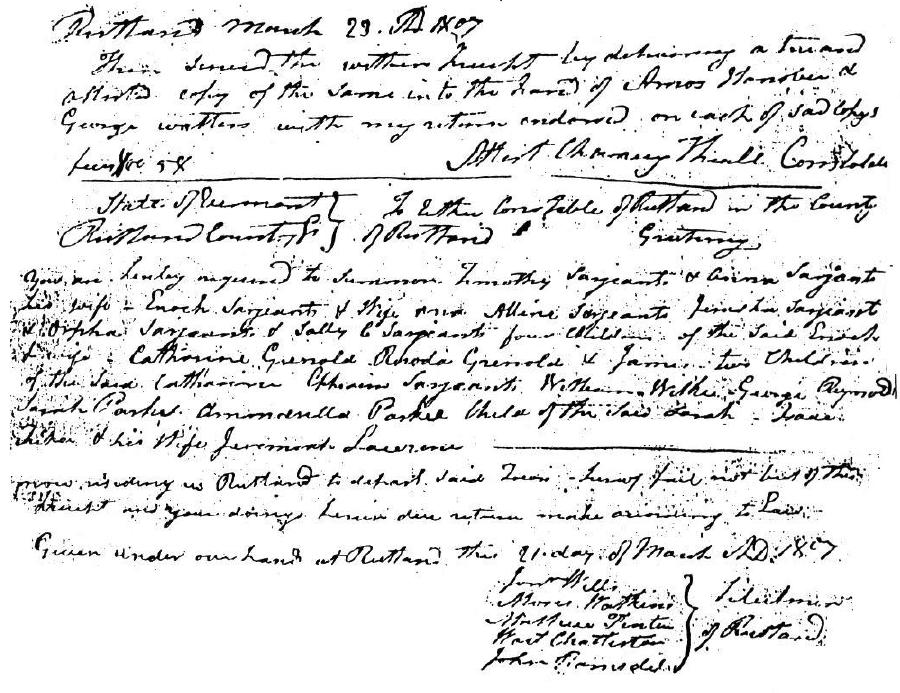 Rutland March 23. AD 1807
Then served the within Precept by delivering a true and
attested copy of the same into the hand of Amos &
George watters with my return endorsed on each of said Copys
Fees 58 Attest Chauncy Thrall Constable
State of Vermont } To Either Constable of Rutland in the County
Rutland County Ss } of Rutland Greeting
You are hereby required to summon Timothy Sargeant & Anna Sarjant
his wife - Enoch Sargeant & Wife and Sargeant Jerusha Sargeant
& Orpha Sargeant & Sally C Sargeant four Children of the said Enoch
& wife - Catharine Grenold Rhoda Grenold & James two Children
of the said Catharine Ephraim Sargeant William George
Sarah Parker Parker Child of the said Sarah - Isaac
& his Wife Jeremiah Lawrence
now residing in Rutland to depart said Town - hereof fail not but of this
precept and your doings herein due return make according to Law
Given under our hands at Rutland this 21 day of March AD. 1807
Jonn Wells
Moses Watkins } Selectmen
of Rutland
Wait Chatterton
John Ramsdel